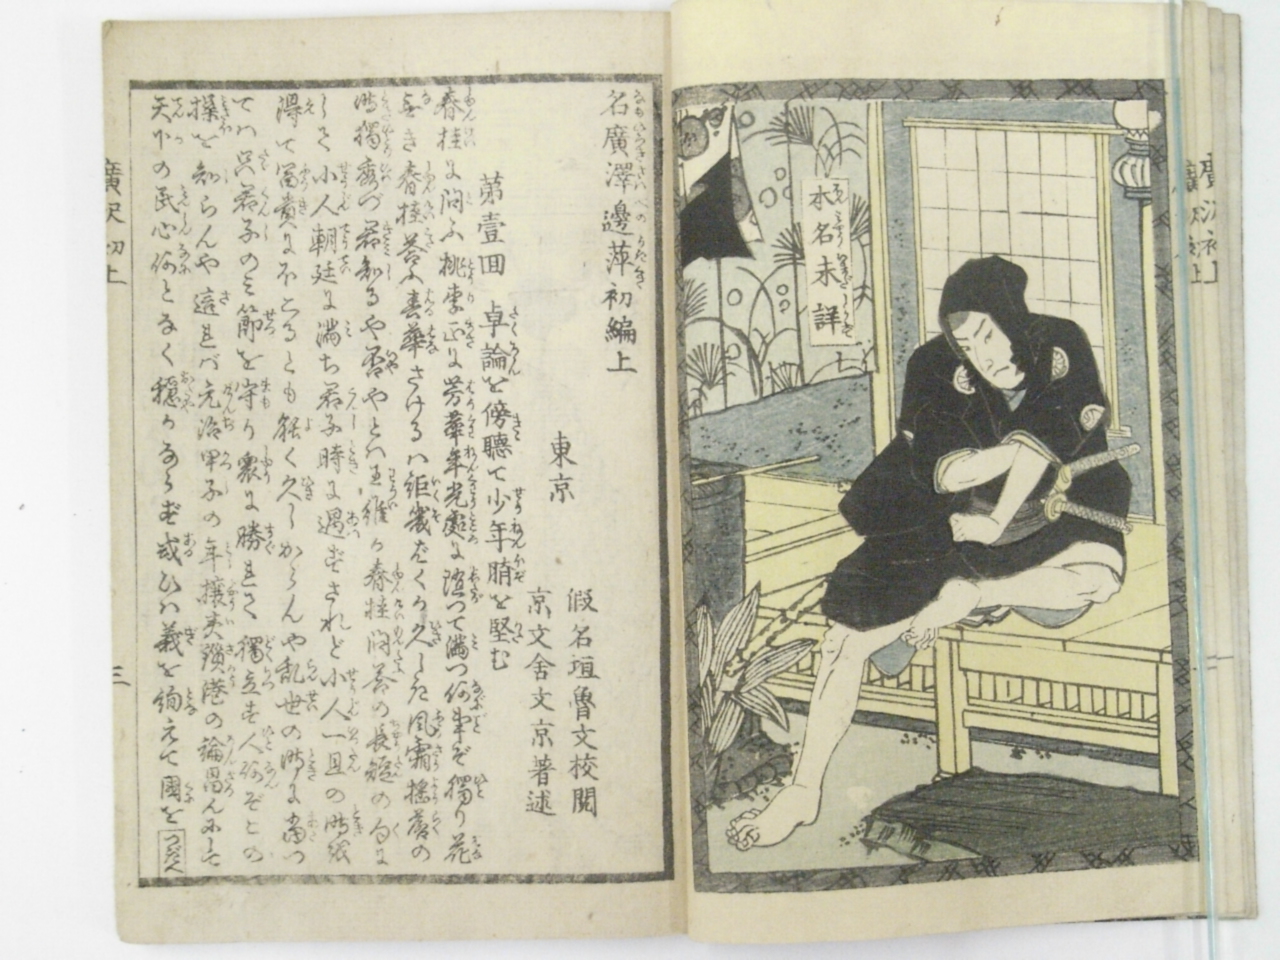 本名未詳
名廣澤邊萍初編上
東京
假名垣魯文校閲
京文舎文京著述
第壹回 卓論を傍聽て少年腈を堅む
春桂に問ふ桃李正に芳華年光處に随つて満つ何事ぞ獨り花
無き春桂答ふ春華さけるハ詎幾ぞくか久しき風霜搖落の
時獨秀づ君知るや否やとハ王維が春桂問答の長短の句に
して小人朝廷に満ち君子時に遇ずされど小人一旦の時を
得て冨貴にほこるとも能く久しからんや乱世の時に當つ
てハ只君子のミ節を守り衆に勝れて獨立す人何ぞこの
操を知らんや這れバ元治甲子の年攘夷鎖港の論
天下の民心何となく穏かならず或ひハ義を絢えて國を
廣沢初上
三